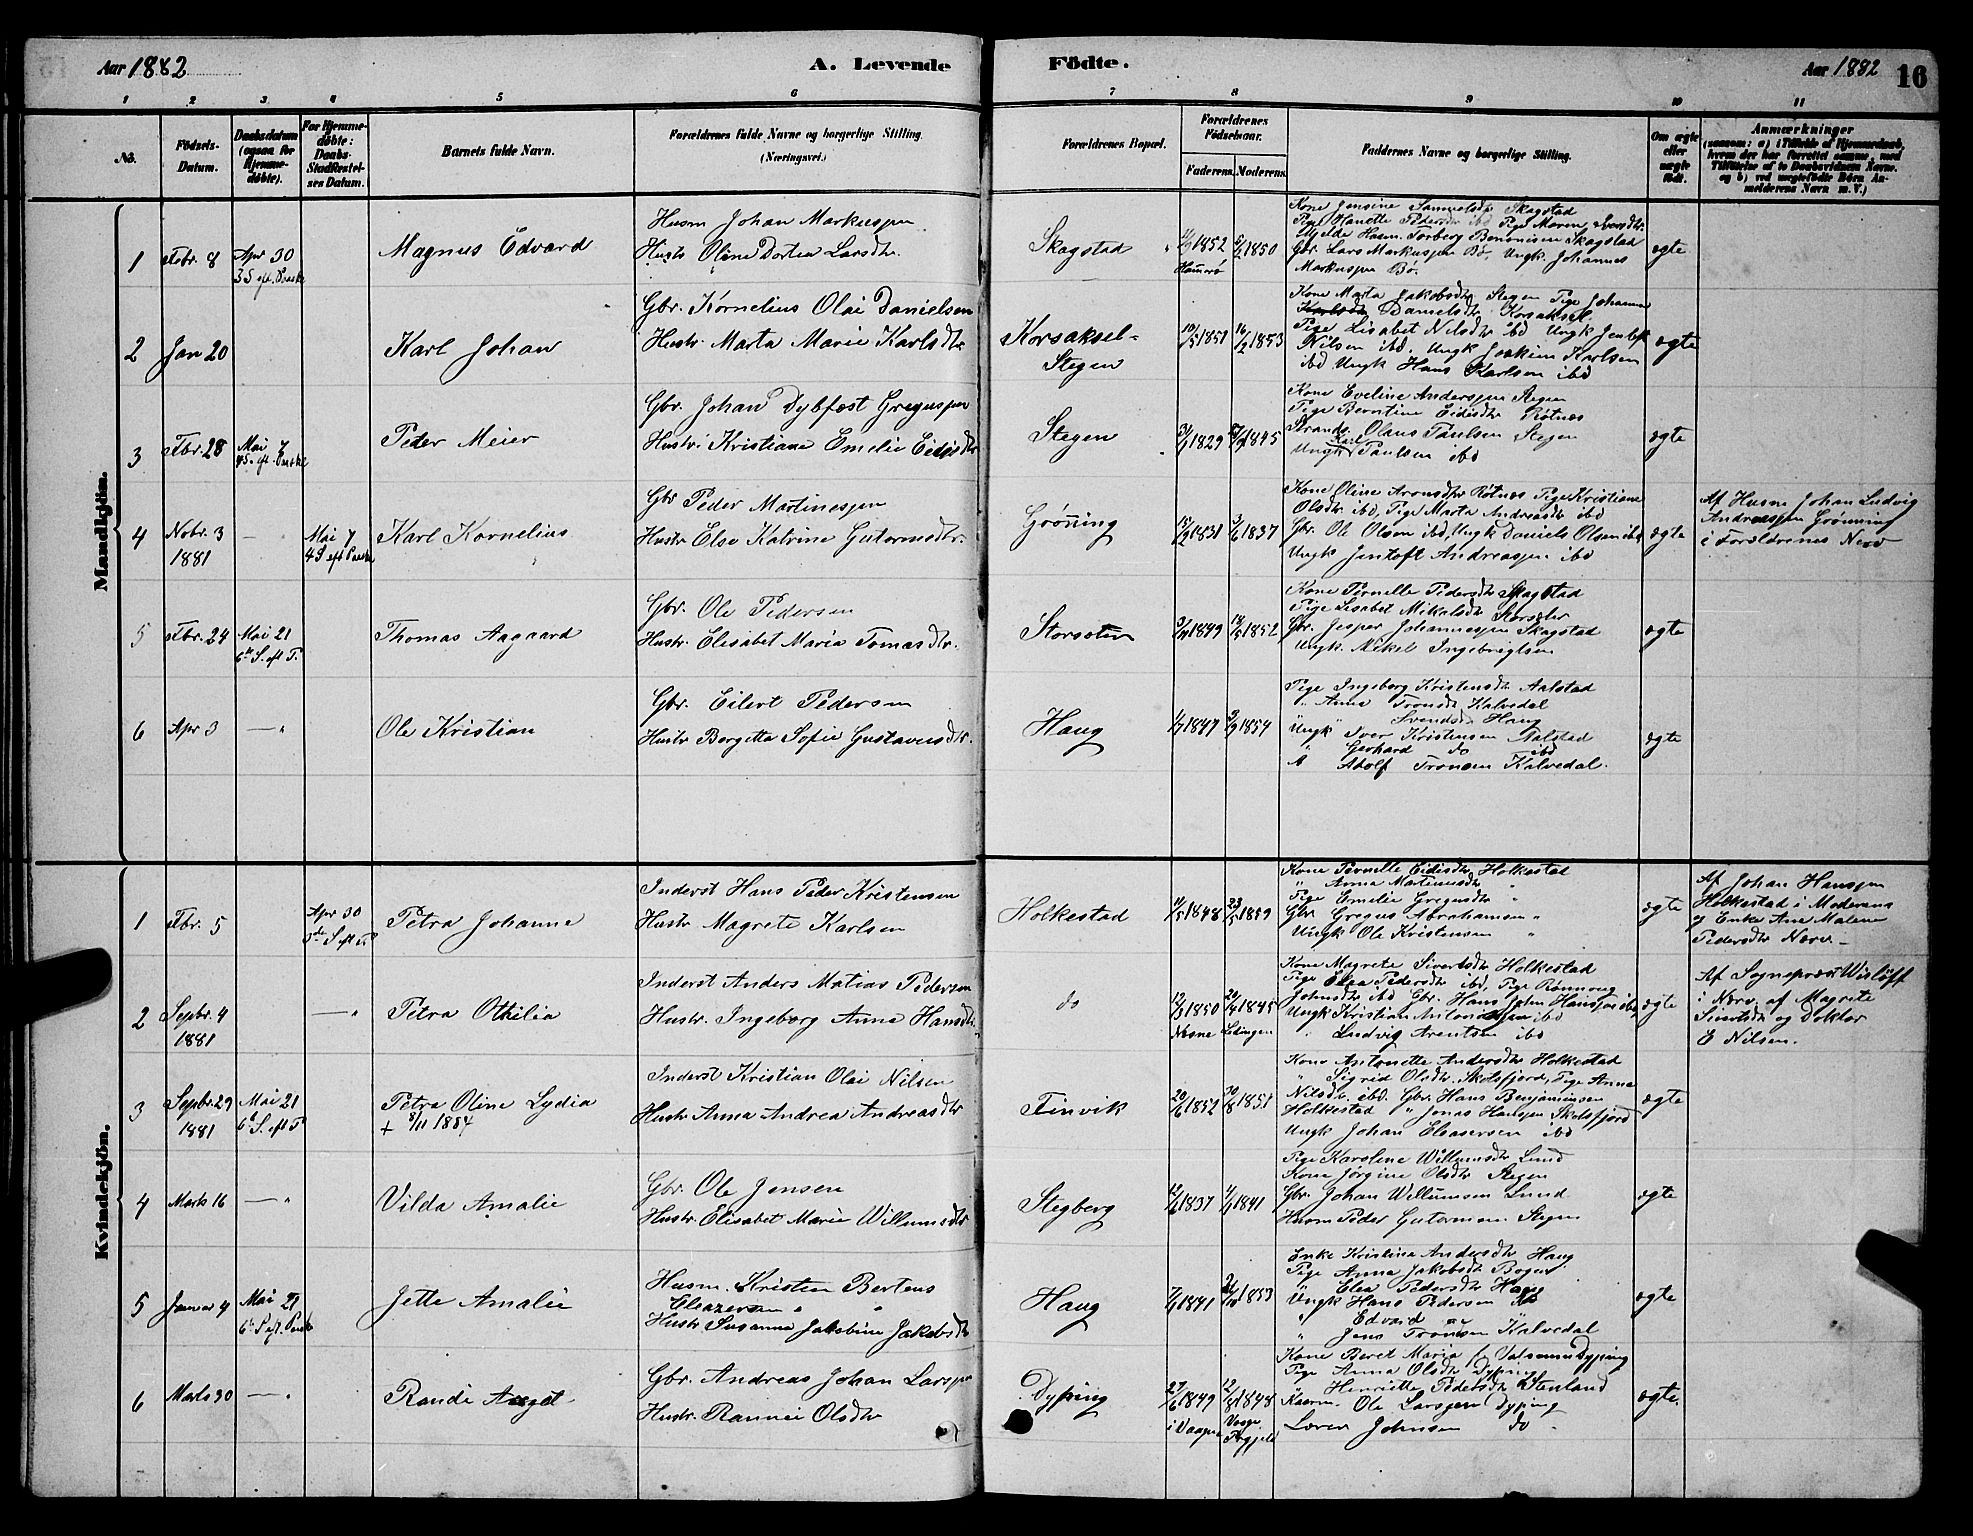 Aar 1882
A. Levende
Födte.
Aar 1882
16
1 2 3 4 5 6 7 8 9 10 11
No.
Födsels-
Datum.
Daabsdatum
(ogsaa for
Hjemme-
døbte).
For Hjemme-
døbte:
Daabs-
Stadfæstel-
ses Datum.
Barnets fulde Navn.
Forældrenes fulde Navne og borgerlige Stilling.
(Næringsvei.)
Forældrenes Bopæl.
Forældrenes
Födselsaar.
Faderens.
Moderens.
Faddernes Navne og borgerlige Stilling.
Om ægte
eller
uægte
født.
Anmærkninger
(saasom: a) i Tilfælde af Hjemmedaab,
hvem der har forrettet samme, med
Tilføielse af to Daabsvidners Navne.
og b) ved uægtefødte Börn An-
melderens Navn m. V.)
Mandkjön.
1
Fbr. 8
Apr 30
3 S eft. Paaske
Magnus Edvard
Husm Johan Markuspen
Hustr Oline Dortea Larsdtr.
Skagstad
1852
Hamerø
1850
Kone Jensine Samuelsdtr Skagstad
Pige Hanette Pedersdtr ibd Pige Maren
Husm. Torberg Benonisen Skagstad
Gbr Lars Markuspen Bø, Ungk. Johannes
Markuspen Bø.
ægte
2
Jan 20
Karl Johan
Gbr. Kornelius Olai Danielsen
Hustr. Marta Marie Karlsdtr
Korsaksel-
Stegen
10/5 1851
16/2 1853
Kone Marta Jakobsdtr Stegen Pige Johanna
Danielsdtr Korsaksel.
Pige Lisabet Nilsdtr ibd Ungk Jentoft
Nilsen ibd. Ungk Joakim Karlsen
ibd Ungk Hans Karlsen ibd
ægte
3
Fbr. 28
Mai 7
4 S. eft. Paaske
Peder Meier
Gbr. Johan Dybfest Greguspen
Hustr. Kristiane Emelie Eidisdtr
Stegen
1829
1845
Kone Eveline Anderspen Stegen
Pige Berntine Eidisdtr Røtnæs
Strands. Olaus Paulsen Stegen
Ungk Karl Paulsen ibd
ægte
4
Nobr. 3
1881
—
Mai 7
4 S eft Paaske
Karl Kornelius
Gbr Peder Martinespen
Hustr Else Katrine Gutormsdtr.
Grøning
15/2 1831
3/6 1837
Kone Oline Aronsdtr Røtnæs Pige Kristiane
Olsdtr ibd, Pige Marta Andreasdtr ibd
Gbr. Ole Olsen ibd, Ungk Daniels Olsen ibd
Ungk Jentoft Andreaspen ibd
ægte
Af Husm Johan Ludvig
Andreaspen Grønning
i Forældrenes Nærv
5
Fbr. 24
Mai 21
6te S. eft P.
Thomas Aagaard
Gbr. Ole Pedersen
Hustr. Elisabet Maria Tomasdtr.
1849
1852
Kone Pernelle Pedersdtr Skagstad
Pige Lisabet Mikalsdtr
Gbr. Jesper Johannespen Skagstad
Ungk. Mikel Ingebrigtsen
ægte
6
Apr 3
— "
Ole Kristian
Gbr. Eilert Pedersen
Hustr Bergetta Sofie Gustavusdtr.
Haug
1/7 1847
3/9 1854
Pige Ingeborg Kristensdtr Aalstad
" Anna Tronsdtr Kalvedal
" Svendsdtr Haug
Ungk Iver Kristensen Aalstad
" Gerhard do ibd
" Adolf Tronsen Kalvedal.
ægte
Kvindekjön.
1
Fbr. 5
Apr 30
3de S eft P
Petra Johanne
Inderst Hans Peder Kristensen
Hustr Magrete Karlsen
Holkestad
11/5 1848
23/5 1859
Kone Pernelle Eidisdtr Holkestad
" Anna Martinusdtr "
Pige Emelie Gregusdtr "
Gbr Gregus Abrahamsen "
Ungk Ole Kristensen "
ægte
Af Johan Hanspen
Holkestad i Moderens
og Enke Ane Malene
Pedersdtr Nærv. —
2
Sepbr. 4
1881
— "
Petra Othilia
Inderst Anders Matias Pedersen
Hustr. Ingeborg Anna Hansdtr.
do
12/3 1850
Næsne
20/4 1845
Lødingen
Kone Magrete Sivertsdtr Holkestad
Pige Elea Pedersdtr ibd, Pige Rønnaug
Johnsdtr ibd Gbr. Hans John Hanspen ibd,
Ungk Kristian ibd
" Ludvig Arentsen ibd
ægte
Af Sognepræst Wisløff
i Nærv. af Magrete
Sivertsdtr og Doktor
E Nilsen.
3
Sepbr. 29
1881
Mai 21
6te S. eft P
Petra Oline Lydia
+ 8/11 1884
Inderst Kristian Olai Nilsen
Hustr Anna Andrea Andreasdtr
Finvik
20/6 1852
30/8 1851
Kone Antonette Andersdtr Holkestad
" Sigrid Olsdtr. Skotsfjord, Pige Anna
Nilsdtr. ibd. Gbr. Hans Benjaminsen
Holkestad " Jonas Hanspen Skotsfjord
Ungk Johan Eleasersen ibd
ægte
4
Marts 16
— "
Vilda Amalie
Gbr. Ole Jensen
Hustr. Elisabet Marie Willumsdtr
Stegberg
12/6 1837
4/1 1841
Pige Karoline Willumsdtr Lund
Kone Jørgine Olsdtr Stegen
Gbr. Johan Willumsen Lund
Husm Peder Gutormsen Stegen
ægte
5
Januar 4
Mai 21
6te S eft. Paaske
Jette Amalie
Husm. Kristen Bertens
Eleazersen "
Hustr Susanna Jakobine Jakobsdtr
Haug
1841
1853
Enke Kristine Andersdtr Haug
Pige Anna Jakobsdtr Bogen
" Elea Pedersdtr Haug
Ungk Hans Pedersen do
" Edvard do
" Jens Tronsen Kalvedal
ægte
6
Marts 30
— "
Randi
Gbr. Andreas Johan Larspen
Hustr. Rannei Olsdtr
Dyping
27/6 1849
i Vaage
12/8 1848
Vaage
Kone Beret Maria Dyping
Pige Anna Olsdtr Dyping
" Henriette Pedersdtr Stenland
Kaarm. Ole Larspen Dyping
Lærer Johnsen do
ægte.